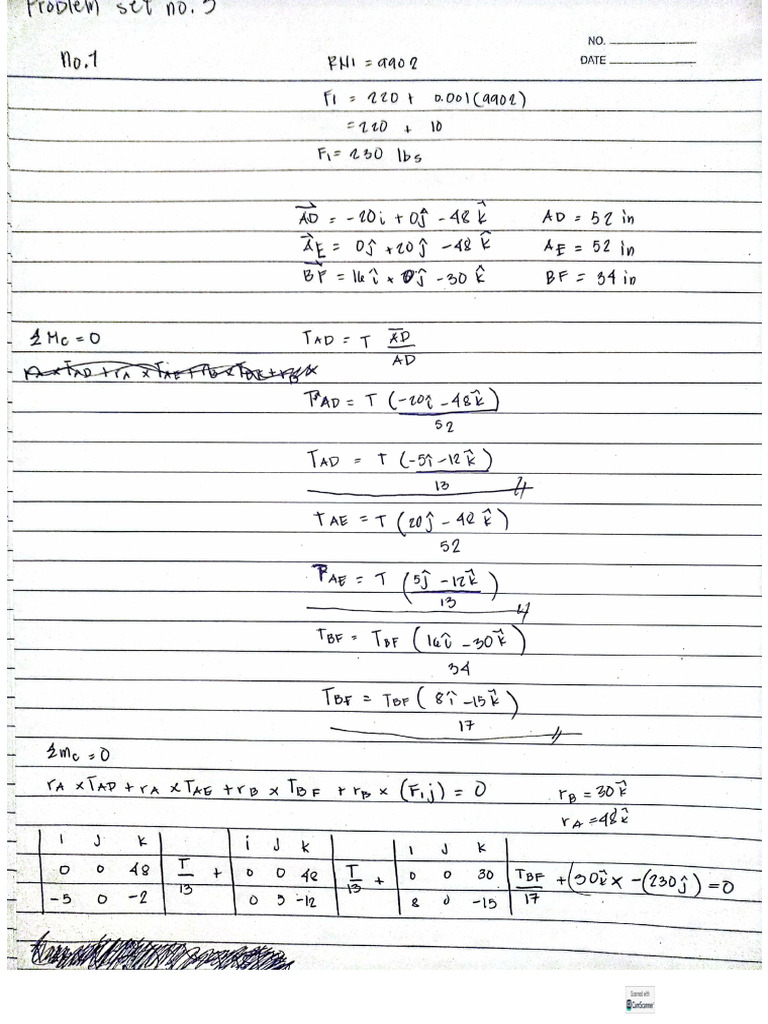 Problem set no. 3
NO.
DATE
No. 1
RN1 = 9902
F1 = 220 + 0.001(9902)
= 220 + 10
F1 = 230 lbs
AD = -20i + 0ĵ - 48 k̂ AD = 52 in
AE = 0ĵ + 20ĵ - 48 k̂ AE = 52 in
BF = 16î + 0ĵ - 30 k̂ BF = 34 in
ΣMc = 0
TAD = T AD/AD
TAD = T (-20î - 48k̂)/52
TAD = T (-5î - 12k̂)/13
TAE = T (20ĵ - 48k̂)/52
TAE = T (5ĵ - 12k̂)/13
TBF = TBF (16î - 30k̂)/34
TBF = TBF (8î - 15k̂)/17
Σmc = 0
rA x TAD + rA x TAE + rB x TBF + rB x (F1j) = 0
rB = 30k̂
rA = 48k̂
i j k i j k i j k
0 0 48 T/13 + 0 0 48 T/13 + 0 0 30 TBF/17 + (30k̂ x -(230ĵ) = 0
-5 0 -2 0 5 -12 8 0 -15
Scanned with
CamScanner